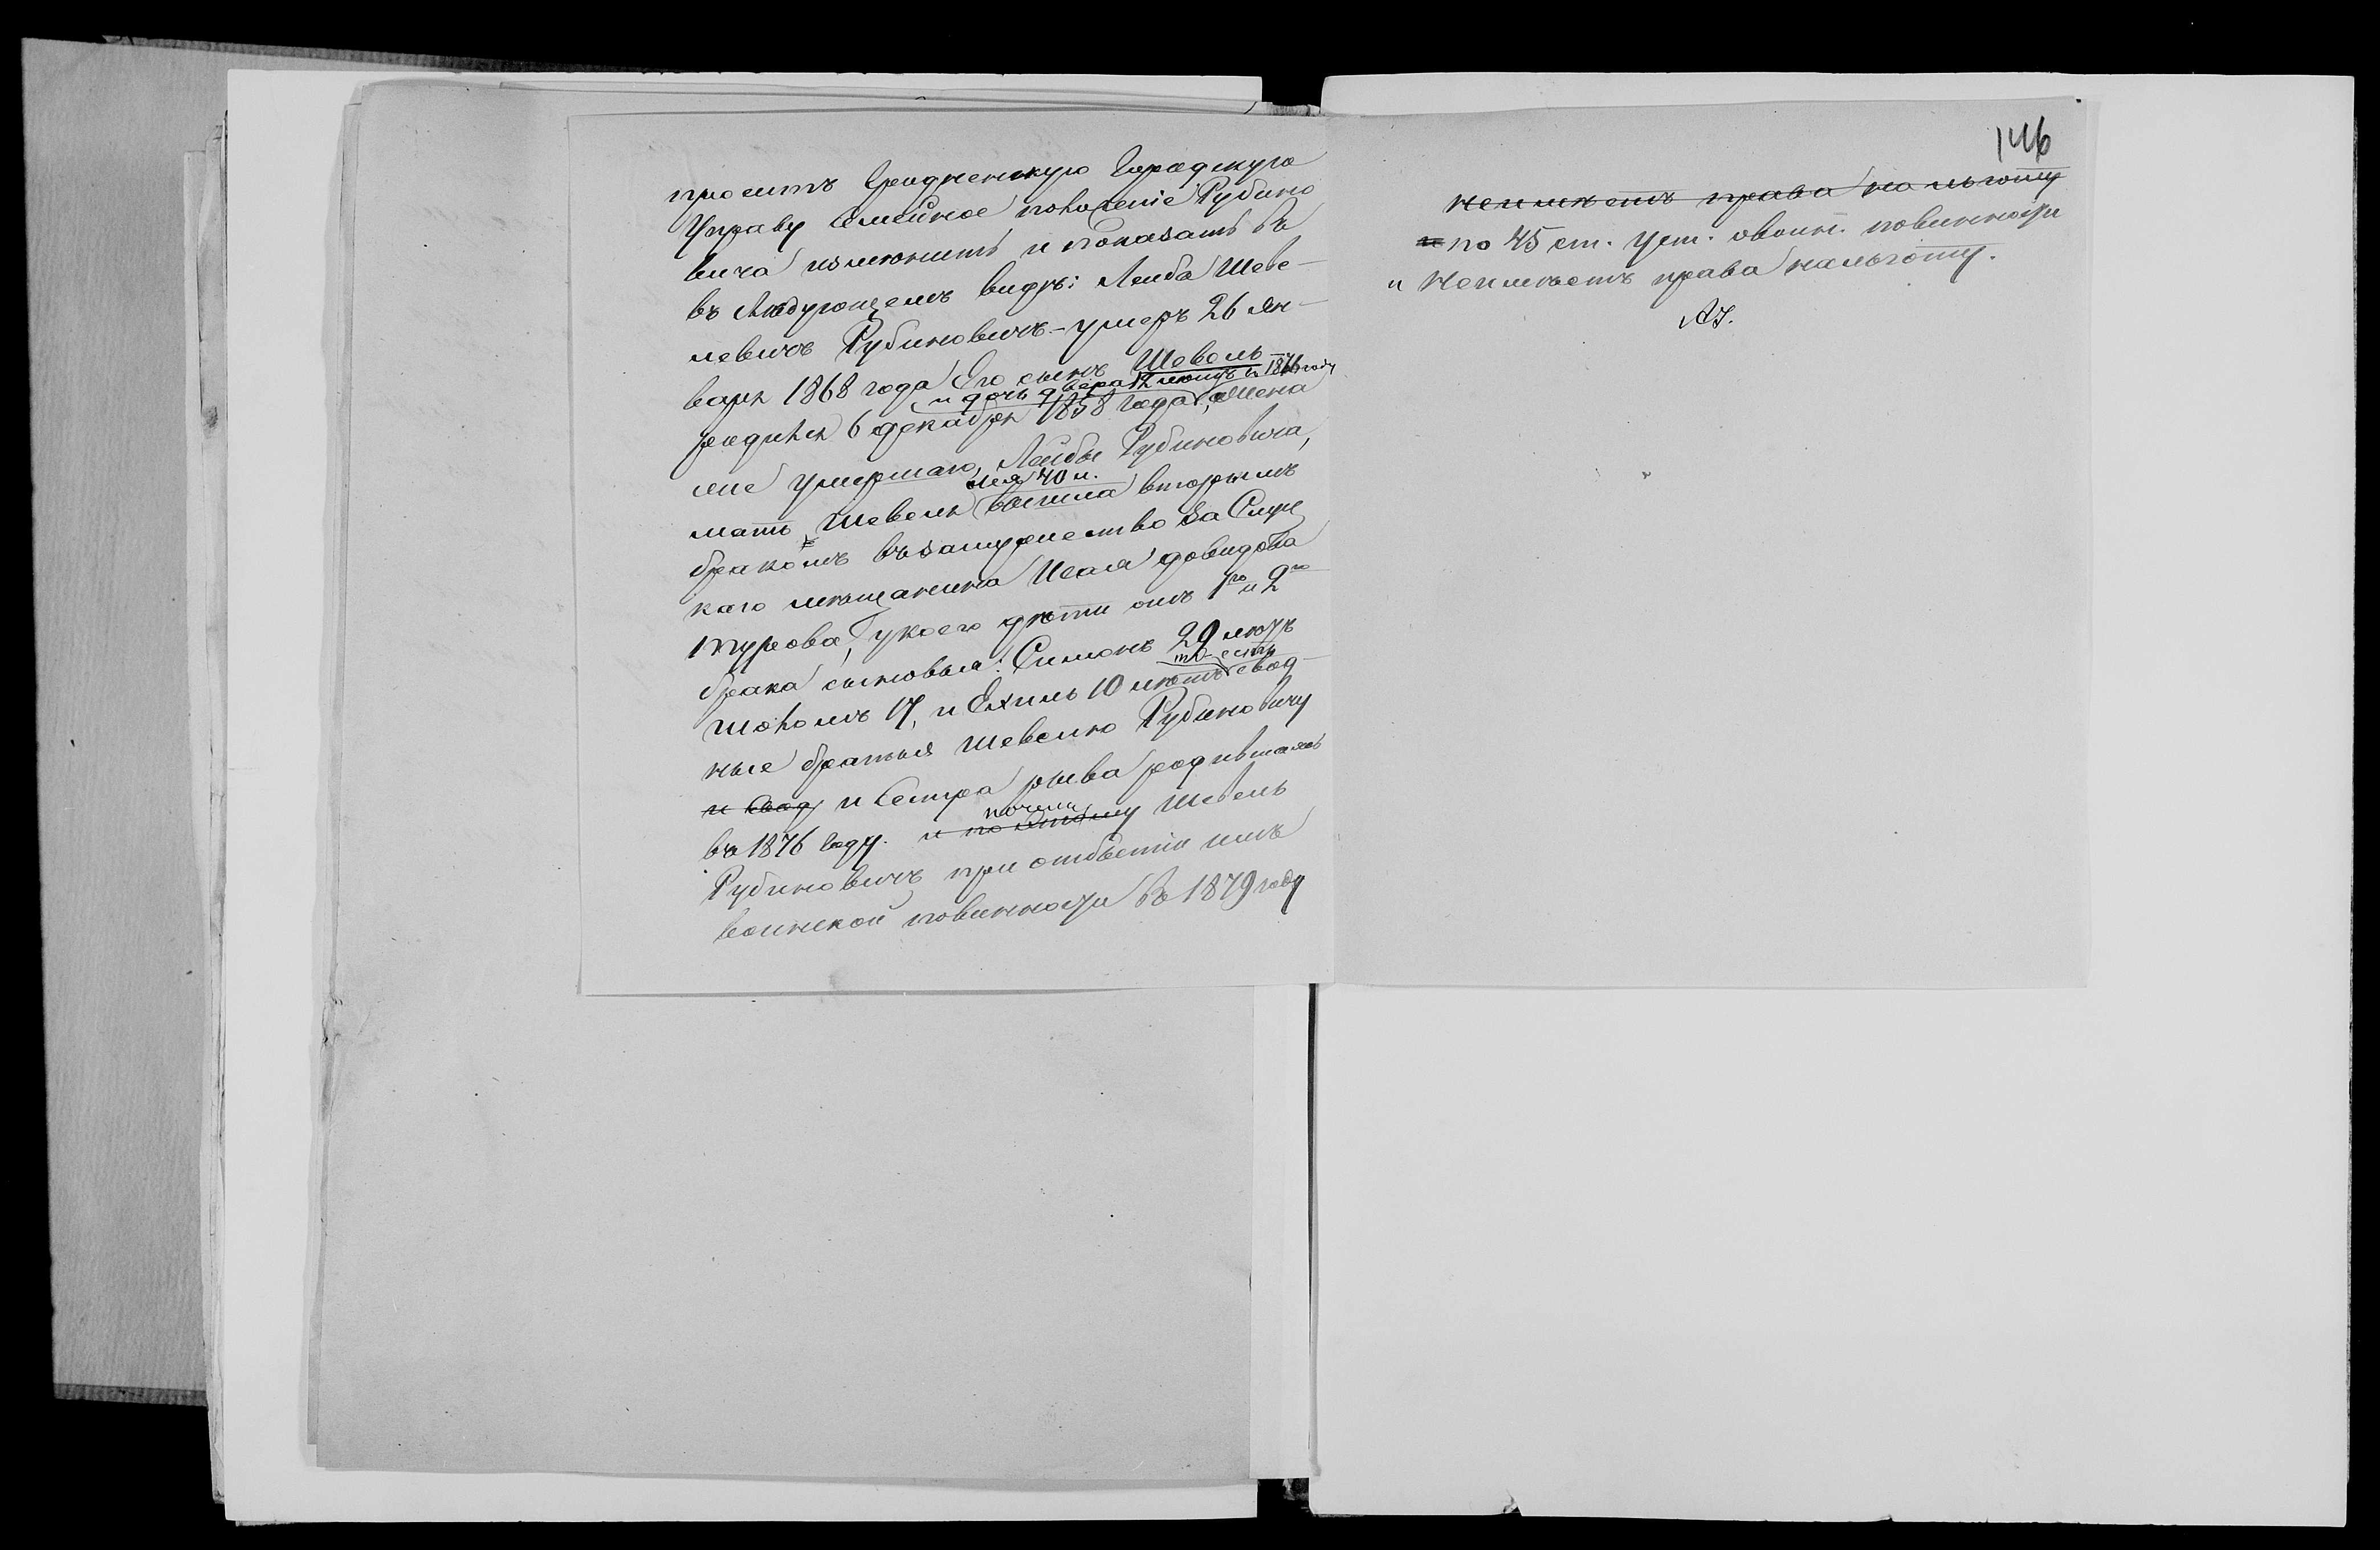 проситъ Гродненскую Городскую
Управу Семейное положеніе Рубино
вича измѣнить и показать въ
въ слѣдующемъ видѣ: Лейба Шеве-
левичъ Рубиновичъ - умеръ 26 Ян-
варя 1868 года Его сынъ Шевель
и дочь двера 12 лѣтъ въ 1876 году
родился 6 декабря 1858 года, Жена
же умершаго, Лейбы Рубиновича,
Лея 40 л.
мать Шевеля вышла вторымъ
бракомъ въ замужество за Слуц
каго мѣщанина Исаія довидова
Турова, у коего дѣти отъ 1го и 2го
брака сыновья: Симонъ 29 лѣтъ
то-есть
Шоломъ 17, и Ехиль 10 лѣтъ свод-
ные братья Шевелю Рубиновичу
и свод и Сестра рыва родившаяся
въ 1876 году. и по этому Шевель
почему
Рубиновичъ при отбытіи имъ
воинской повинности въ 1879 году
146
неимѣетъ права на льготу
и по 45 ст. Уст. о воин. повинности
и неимѣетъ права на льготу.